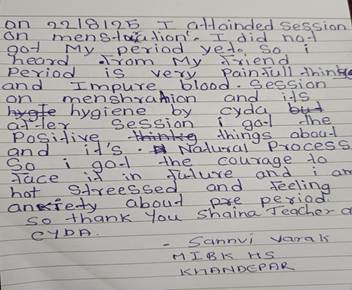 on 22/8/25 I attainded session
on menstruation. I did not
got My period yet. So i
heard from My friend
Period is very painfull thinks
and Impure blood. Session
on menshrahion and its
hygiene by cyda
after Session i got the
Positive things about
and it's Natural Process
So i got the courage to
face it in future and i am
not streessed and feeling
anxiety about period
So thank you shaina Teacher
CYDA.
- Sannvi Varak
MIBK HS
KHANDEPAR